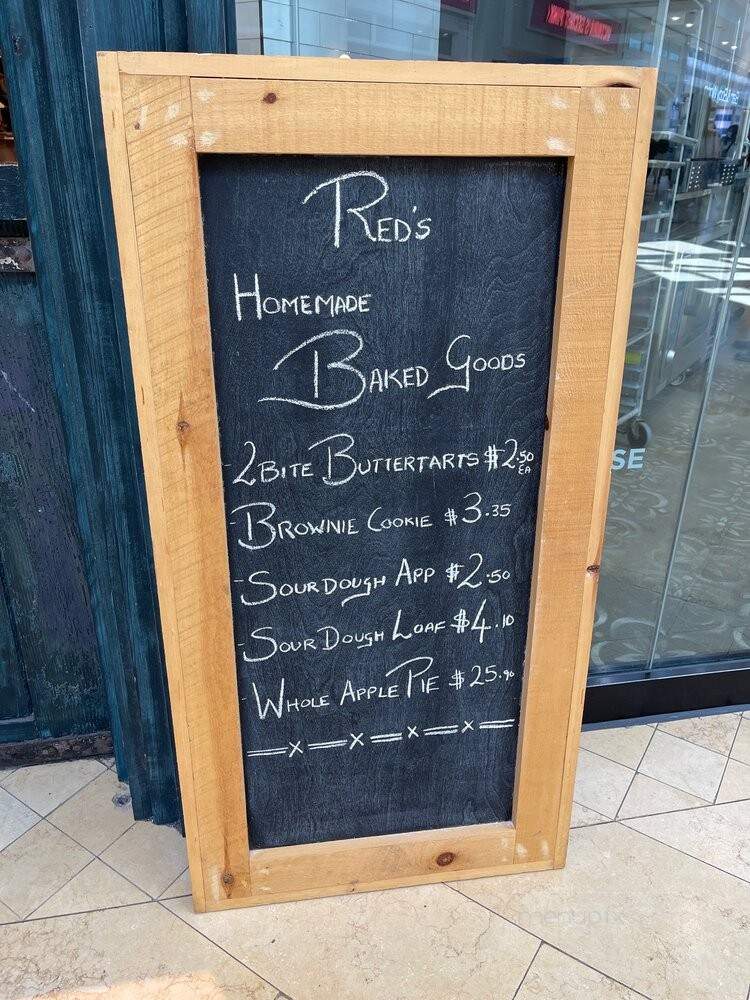 VICTORIA'S SECRET PINK
RED'S
HOMEMADE
BAKED GOODS
- 2 BITE BUTTERTARTS $2.50 EA
- BROWNIE COOKIE $3.35
- SOURDOUGH APP $2.50
- SOUR DOUGH LOAF $4.10
- WHOLE APPLE PIE $25.90
SE